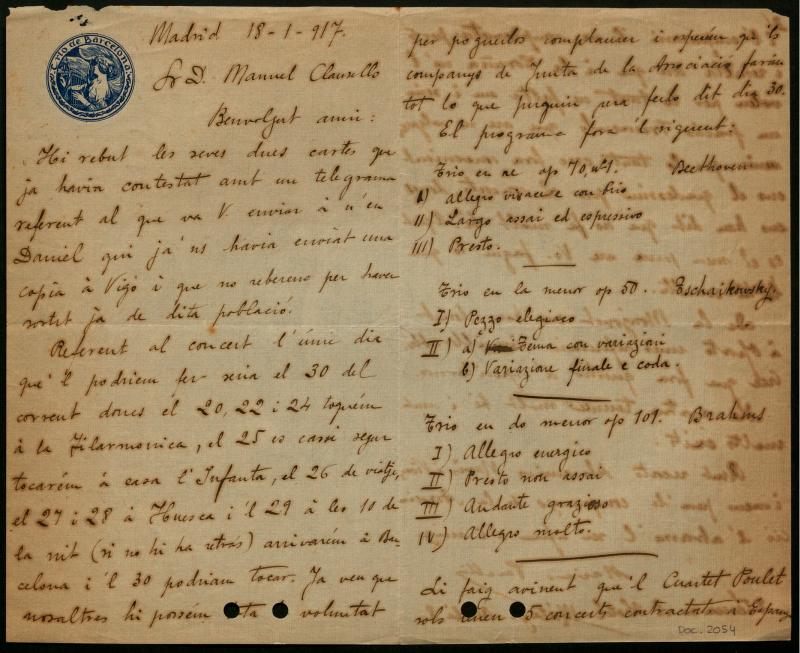 Trio de Barcelona
Madrid 18-1-917.
Sr D. Manuel Clausells
Benvolgut amic:
Hi rebut les seves dues cartes que
ja havia contestat amb un telegrama
referent al que va V. enviar à n'en
Daniel qui ja'ns havia enviat una
copia à Vigo i que no reberem per haver
sortit ja de dita població.
Referent al concert l'únic dia
que'l podriem fer seria el 30 del
corrent doncs el 20, 22 i 24 toquém
à la Filarmonica, el 25 es cassi segur
tocarém à casa l'Infanta, el 26 de viatje,
el 27 i 28 à Huesca i'l 29 à les 10 de
la nit (si no hi ha retràs) arrivarém à Bar-
celona i'l 30 podriam tocar. Ja veu que
nosaltres hi possém tota voluntat
per poguerlos complaurer i esperém que'ls
companys de Junta de la Associació farán
tot lo que puguin per ferlo dit dia 30.
El programa fora'l siguent:
Trio en re op 70, nº1. Beethoven
I) Allegro vivace e con brio
II) Largo assai ed espressivo
III) Presto.
Trio en la menor op 50. Tschaikowsky.
I) Pezzo elegiaco
II) a) Tema con variazioni
b) Variazione finale e coda.
Trio en do menor op 101. Brahms
I) Allegro energico
II) Presto non assai
III) Andante grazioso
IV) Allegro molto.
Li faig avinent que'l Cuartet Poulet
sols tenen 5 concerts contractats à Espanya
DOC. 2054